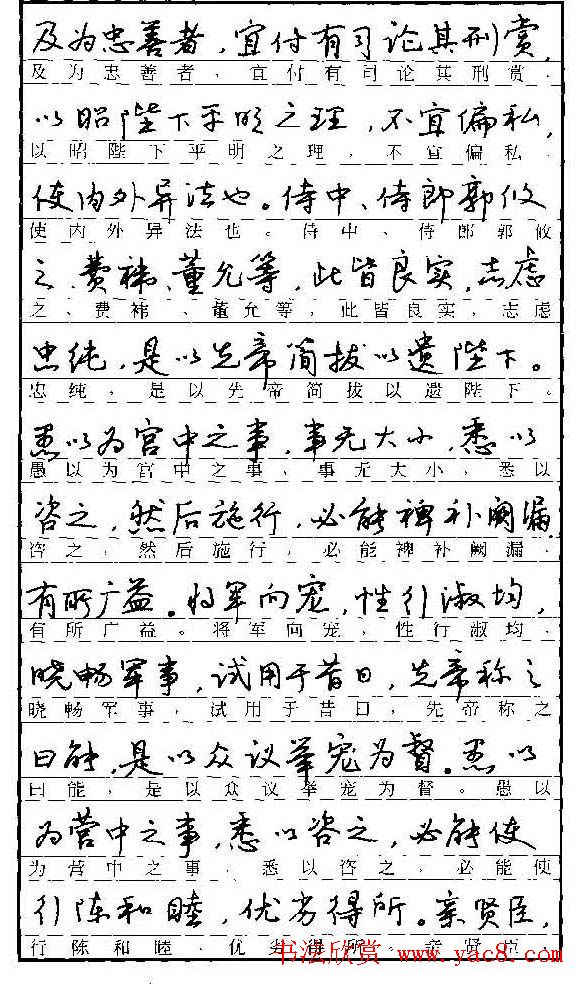 及为忠善者，宜付有司论其刑赏，
及为忠善者，宜付有司论其刑赏，
以昭陛下平明之理，不宜偏私，
以昭陛下平明之理，不宜偏私，
使内外异法也。侍中、侍郎郭攸
使内外异法也。侍中、侍郎郭攸
之、费祎、董允等，此皆良实，志虑
之、费祎、董允等，此皆良实，志虑
忠纯，是以先帝简拔以遗陛下。
忠纯，是以先帝简拔以遗陛下。
愚以为宫中之事，事无大小，悉以
愚以为宫中之事，事无大小，悉以
咨之，然后施行，必能裨补阙漏，
咨之，然后施行，必能裨补阙漏，
有所广益。将军向宠，性行淑均，
有所广益。将军向宠，性行淑均，
晓畅军事，试用于昔日，先帝称之
晓畅军事，试用于昔日，先帝称之
曰能，是以众议举宠为督。愚以
曰能，是以众议举宠为督。愚以
为营中之事，悉以咨之，必能使
为营中之事，悉以咨之，必能使
行陈和睦，优劣得所。亲贤臣，
行陈和睦，优劣得所。亲贤臣，
书法欣赏 www.yac8.com